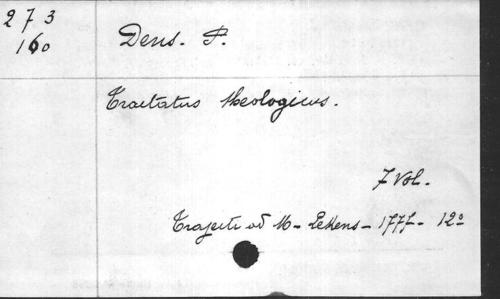 273
160
Dens. P.
Tractatus theologicus.
7 Vol.
Trajecti ad M- Lekens- 1777- 12º